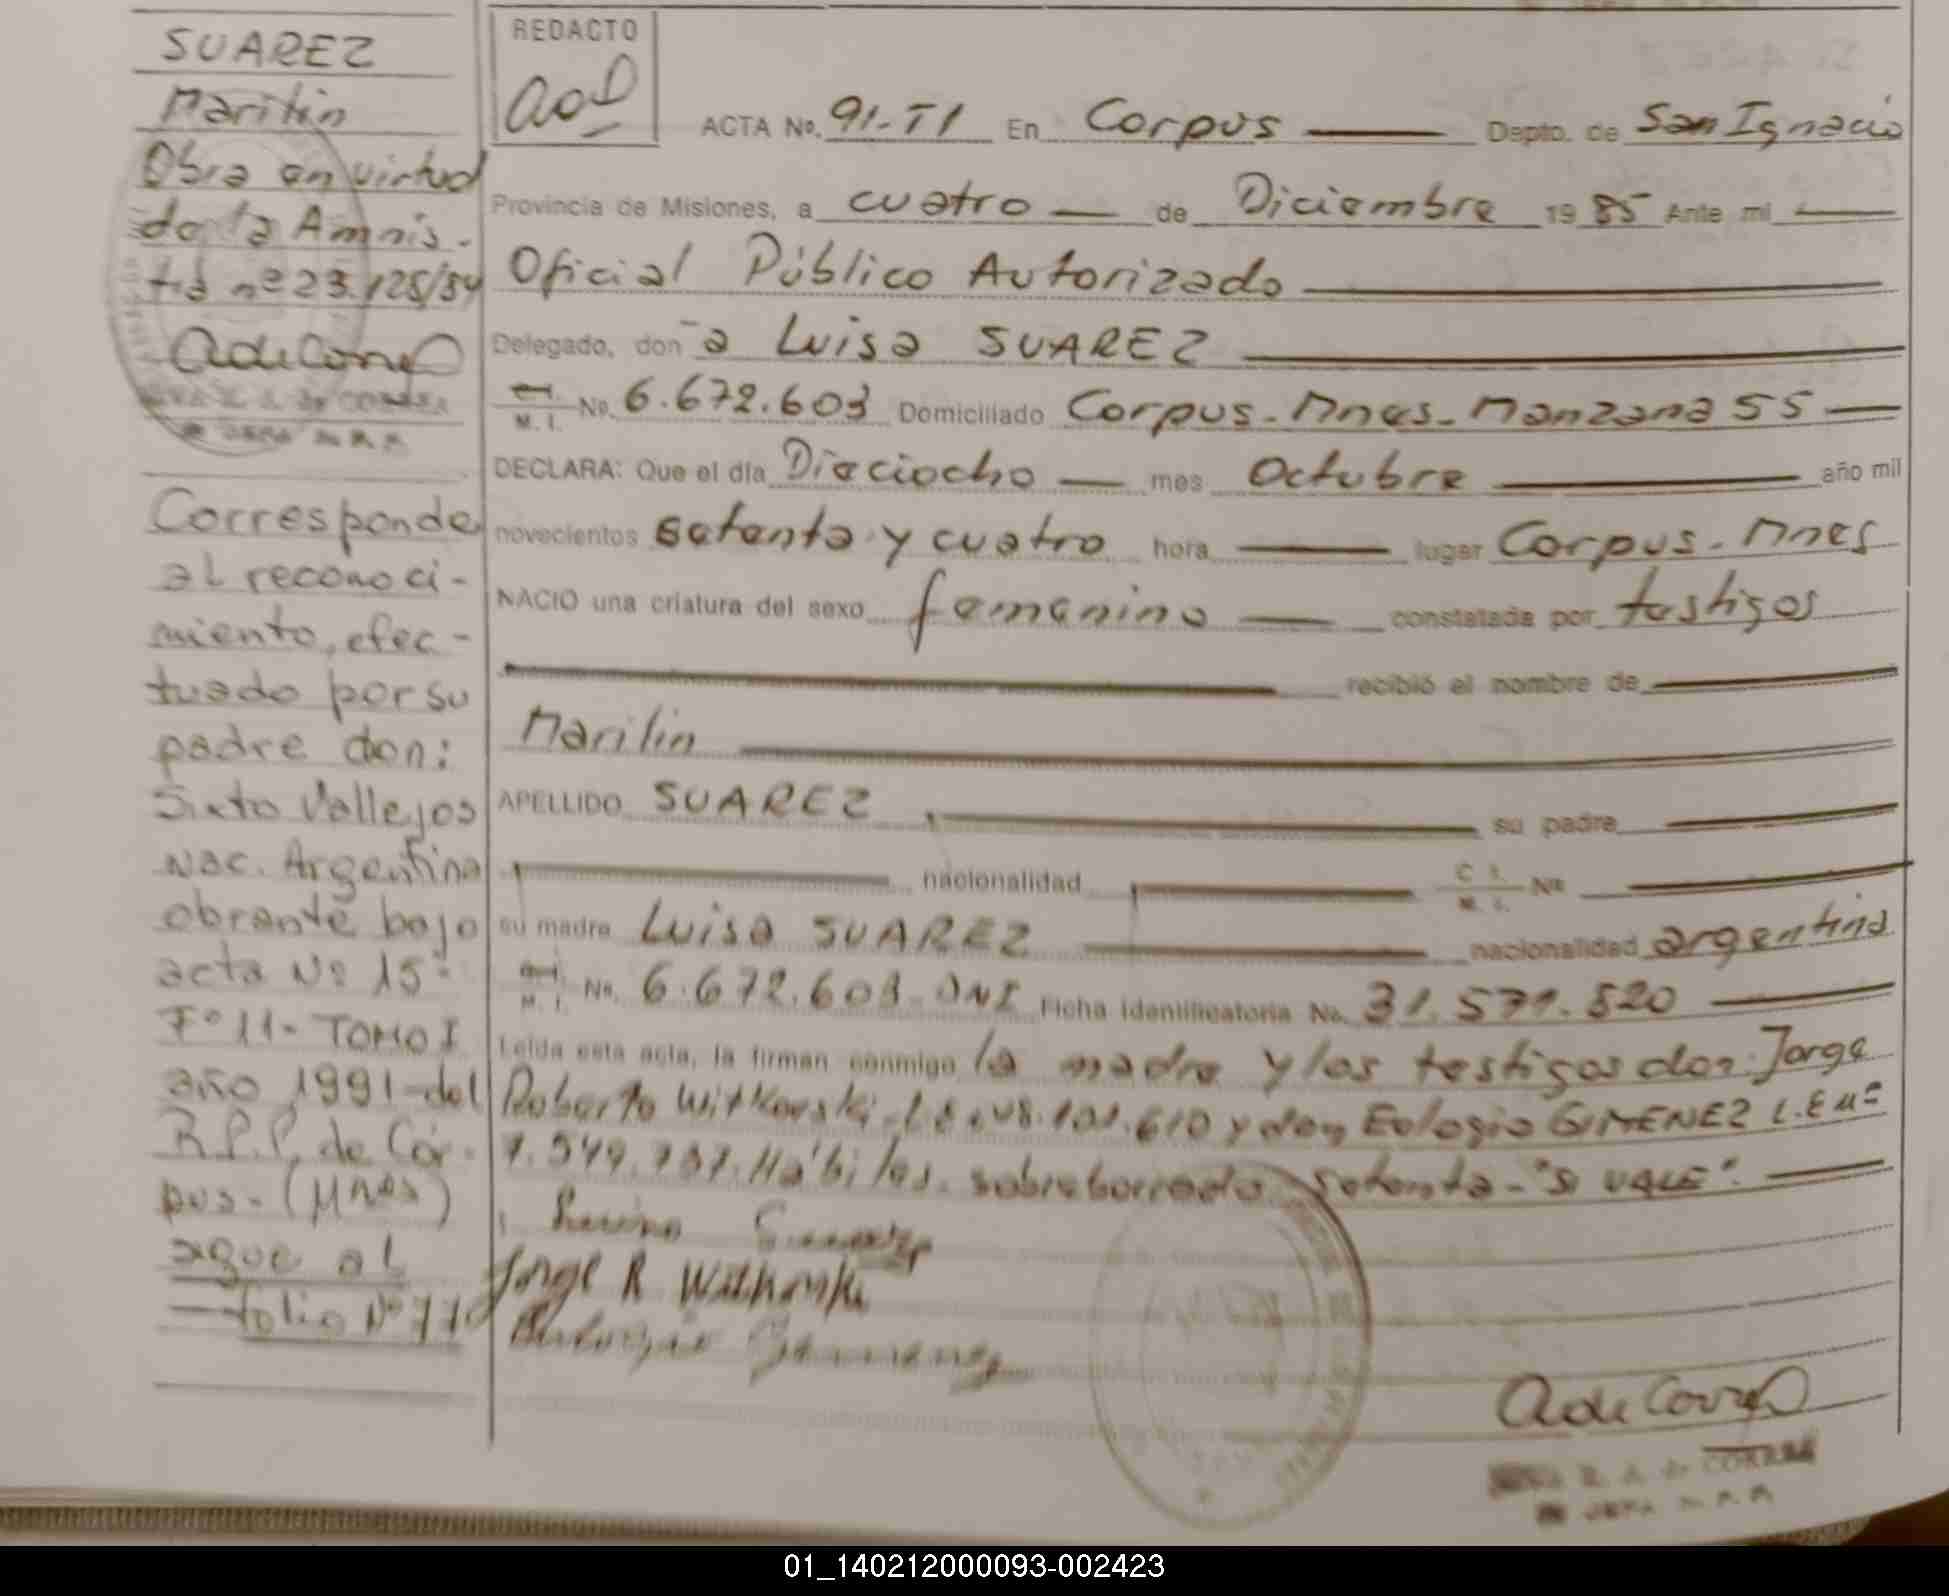 SUAREZ
Marilin
Obra en virtud
de la Amnis-
tia nº 23.125/84
REDACTO
ACTA No. 91-TI En Corpus Depto. de San Ignacio
Provincia de Misiones, a cuatro de Diciembre 19 85 Ante mi
Oficial Público Autorizado
Delegado, don a Luisa SUAREZ
M. I. No. 6.672.603 Domiciliado Corpus - Mnes - Manzana 55
DECLARA: Que el día Dieciocho mes Octubre año mil
novecientos setenta y cuatro hora lugar Corpus - Mnes
NACIO una criatura del sexo femenino constatada por testigos
recibió el nombre de
Marilin
APELLIDO SUAREZ su padre
nacionalidad C. I. M. I. Nº
su madre Luisa SUAREZ nacionalidad argentina
M. I. No. 6.672.603 DNI Ficha Identificatoria No. 31.571.520
Leída esta acta, la firman conmigo la madre y los testigos don: Jorge
Roberto Witkovski y don Eulogio GIMENEZ L.E nº
Hábiles. sobreborrado setenta - "SI VALE".
Suarez
Jorge R Witkovski
Gimenez
Corresponde
al reconoci-
miento, efec-
tuado por su
padre don:
Sixto Vallejos
Nac. Argentina
obrante bajo
acta Nº 15-
Fº 11- TOMO I
año 1991-del
R.P.P. de Cor-
pus - (Mnes)
sigue al
folio Nº
01_140212000093-002423